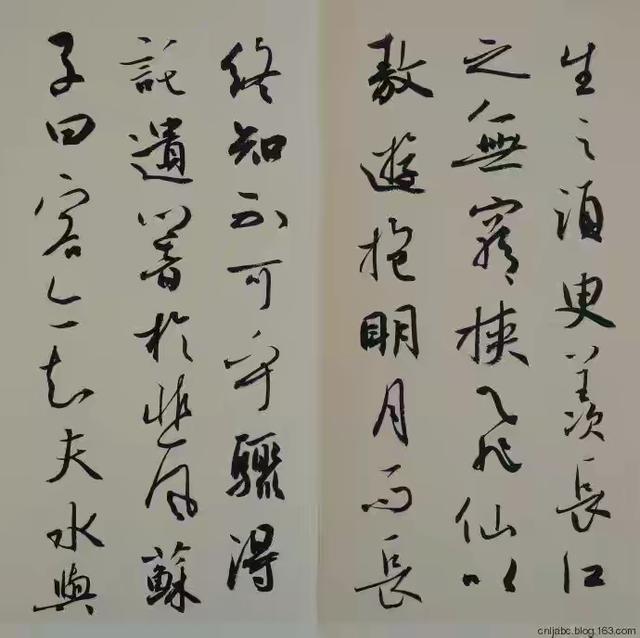 生之須臾羨長江
之無窮挾飛仙以
敖遊抱明月而長
終知不可乎驟得
託遺響於悲風蘇
子曰客亦知夫水與
cnljabc.blog.163.com